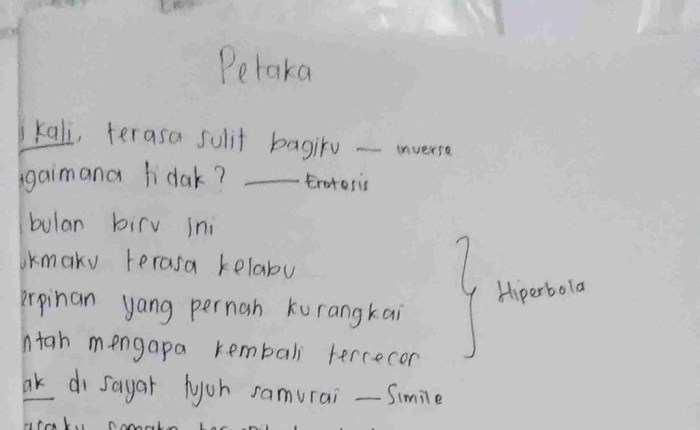 Petaka
kali, terasa sulit bagiku — inverse
gaimana tidak? — Erotesis
bulan biru ini
ukmaku terasa kelabu
erpihan yang pernah kurangkai
Hiperbola
ntah mengapa kembali tercecer
ak di sayat tujuh samurai — Simile